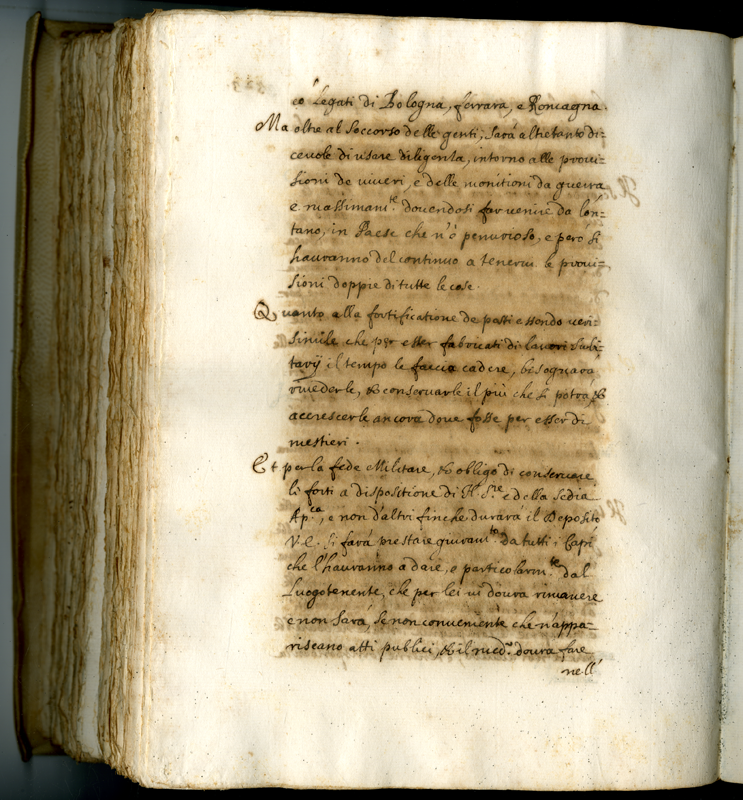 co' Legati di Bologna, ferrara, e Romagna.
Ma oltre al Soccorso delle genti, Sarà altretanto di=
cevole di usare diligenza, intorno alle proui=
sioni de viueri, e delle monitioni da guerra
e massimam.te douendosi far uenire da lon=
tano, in Paese che n'è penurioso, e però si
hauranno del continuo a tenerui le proui=
sioni doppie di tutte le cose.
Quanto alla fortificatione de posti essendo ueri=
simile che per esser fabricati di lauori Subi=
tarij il tempo le faccia cadere, besognarà
riuederle, & conseruarle il più che si potrà, &
accrescerle ancora doue fosse per esser di
mestieri.
Et per la fede Militare, & obligo di conseruare
li forti a dispositione di N. S.re e della Sedia
Ap.ca, e non d'altri finche durarà il Deposito
V. E. si farà prestare giuram.to da tutti i Capi
che l'hauranno a dare, e particolarm.te dal
Luogotenente, che per lei ui dourà rimanere
e non Sarà, se non conueniente che n'appa=
riscano atti publici, & il med.o dourà fare
nell'